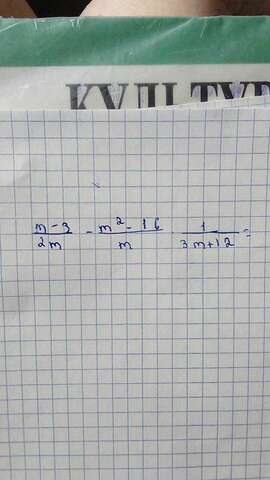 КУЛЬТУР
m-3/2m - m²-16/m · 1/3m+12 =